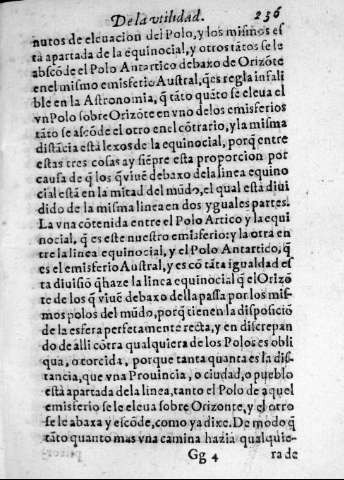 De la vtilidad. 236
nutos de eleuacion del Polo, y los mismos es
tà apartada de la equinocial, y otros tãtos se le
abscõde el Polo Antartico debaxo de Orizõte
en el mismo emisferio Austral, q̃es regla infali
ble en la Astronomia, q̃ tãto quãto se eleua el
vn Polo sobre Orizõte en vno de los emisferios
tãto se ascõde el otro en el cõtrario, y la misma
distãcia està lexos de la equinocial, porq̃ entre
estas tres cosas ay siẽpre esta proporcion por
causa de q̃ los q̃ viuẽ debaxo de la linea equino
cial estã en la mitad del mũdo, el qual està diui
dido de la misma linea en dos yguales partes.
La vna cõtenida entre el Polo Artico y la equi
nocial, q̃ es este nuestro emisferio: y la otra en
tre la linea equinocial, y el Polo Antartico, q̃
es el emisferio Austral, y es cõ tãta igualdad es
ta diuisiõ q̃haze la linea equinocial q̃ el Orizõ
te de los q̃ viuẽ debaxo della passa por los mis-
mos polos del mũdo, porq̃ tienen la disposiciõ
de la esfera perfetamente recta, y en discrepan
do de alli cõtra qualquiera de los Polos es obli
qua, o torcida, porque tanta quanta es la dis-
tancia, que vna Prouincia, o ciudad, o pueblo
està apartada de la linea, tanto el Polo de aquel
emisferio se le eleua sobre Orizonte, y el otro
se le abaxa y escõde, como ya dixe. De modo q̃
tãto quanto mas vna camina hazia qualquie-
Gg 4 ra de